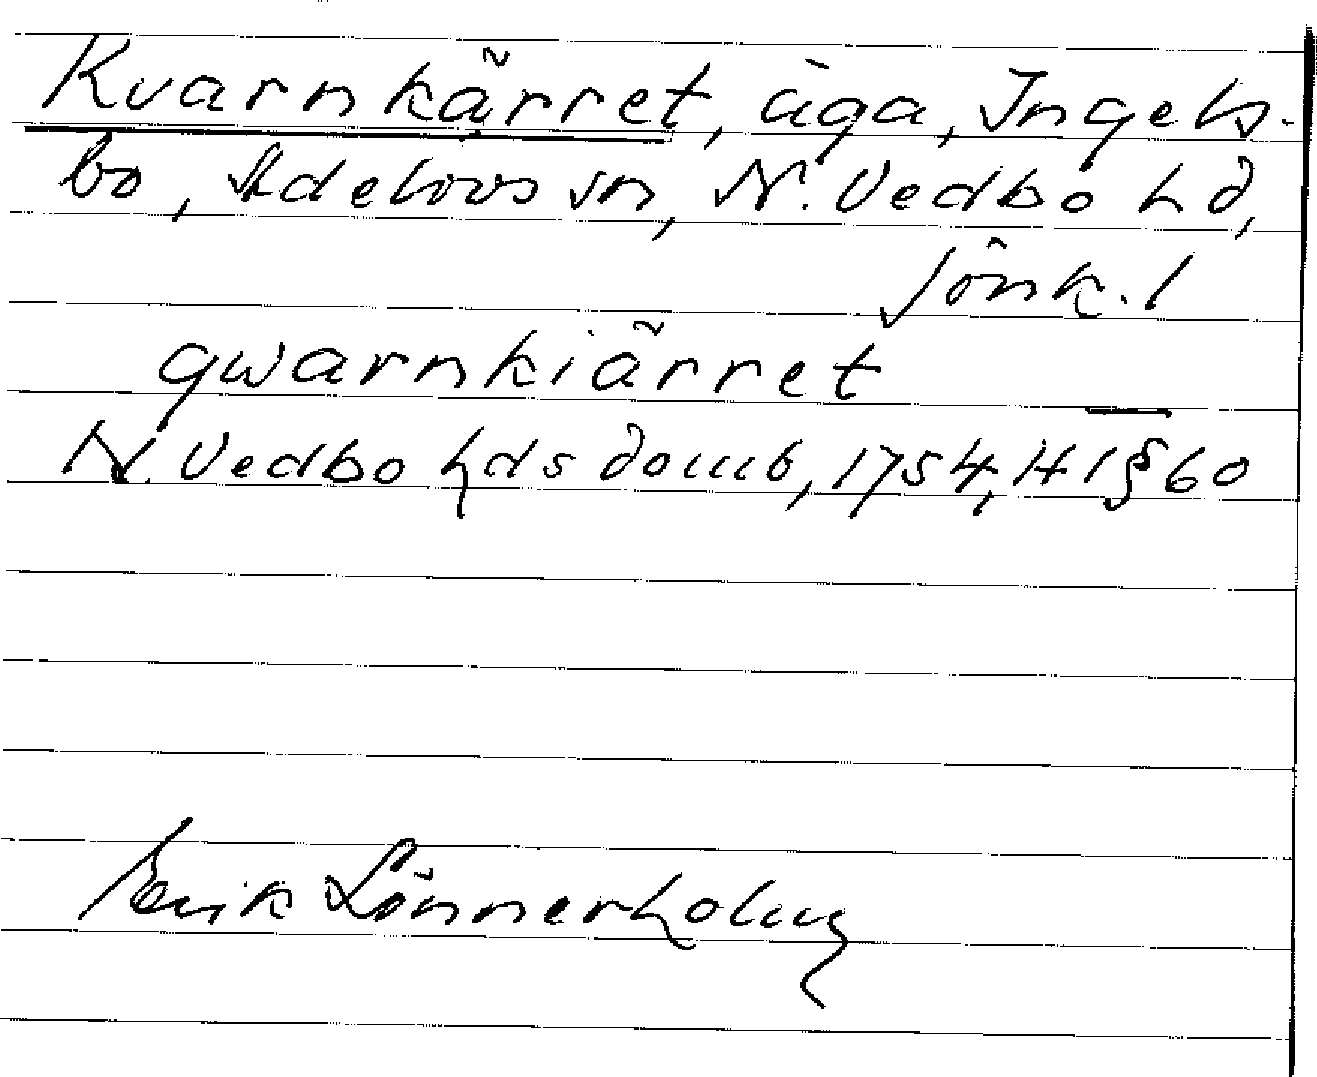 Kvarnkärret, äga, Ingels-
bo, Adelövs sn, N. Vedbo hd,
Jönk. l
qwarnkiärret
N. Vedbo hds domb, 1754, H1 § 60
Erik Lönnerholm